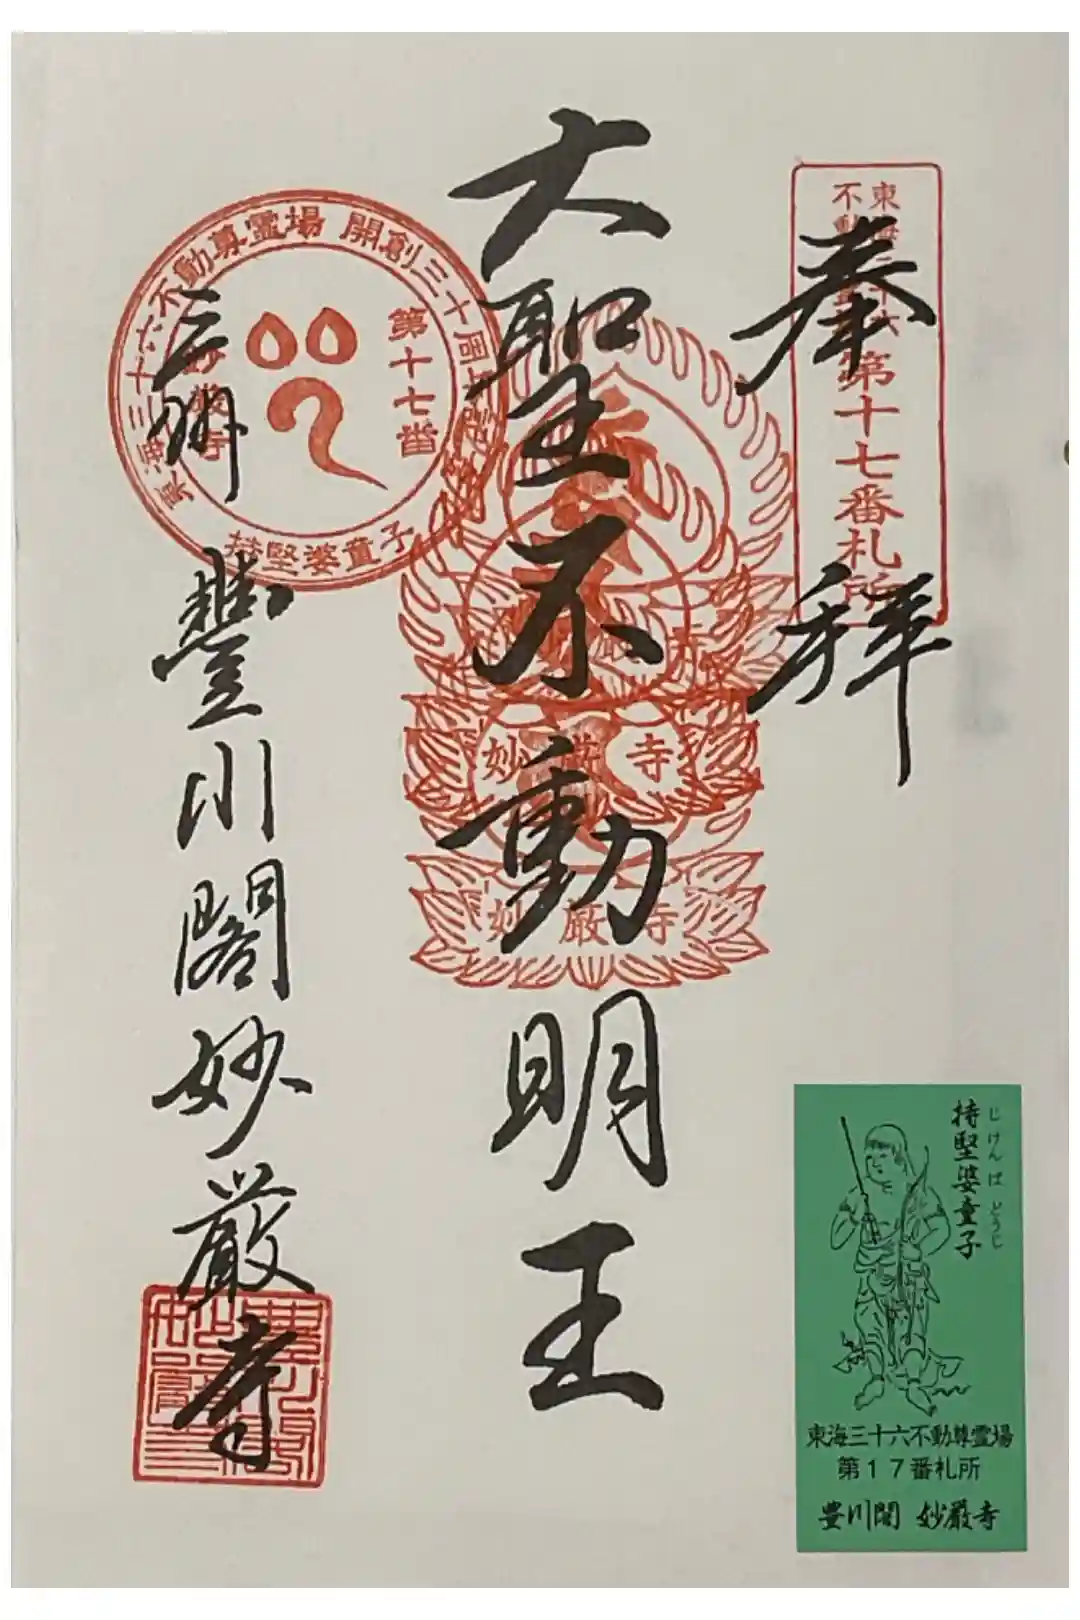 奉拝
東海三十六
不動尊霊場
第十七番札所
大聖不動明王
三州 豐川閣妙厳寺
東海三十六不動尊霊場 開創三十周年記念
第十七番
妙厳寺
持堅婆童子
妙厳寺
妙厳寺
持堅婆童子
じけんば どうじ
東海三十六不動尊霊場
第17番札所
豊川閣 妙厳寺